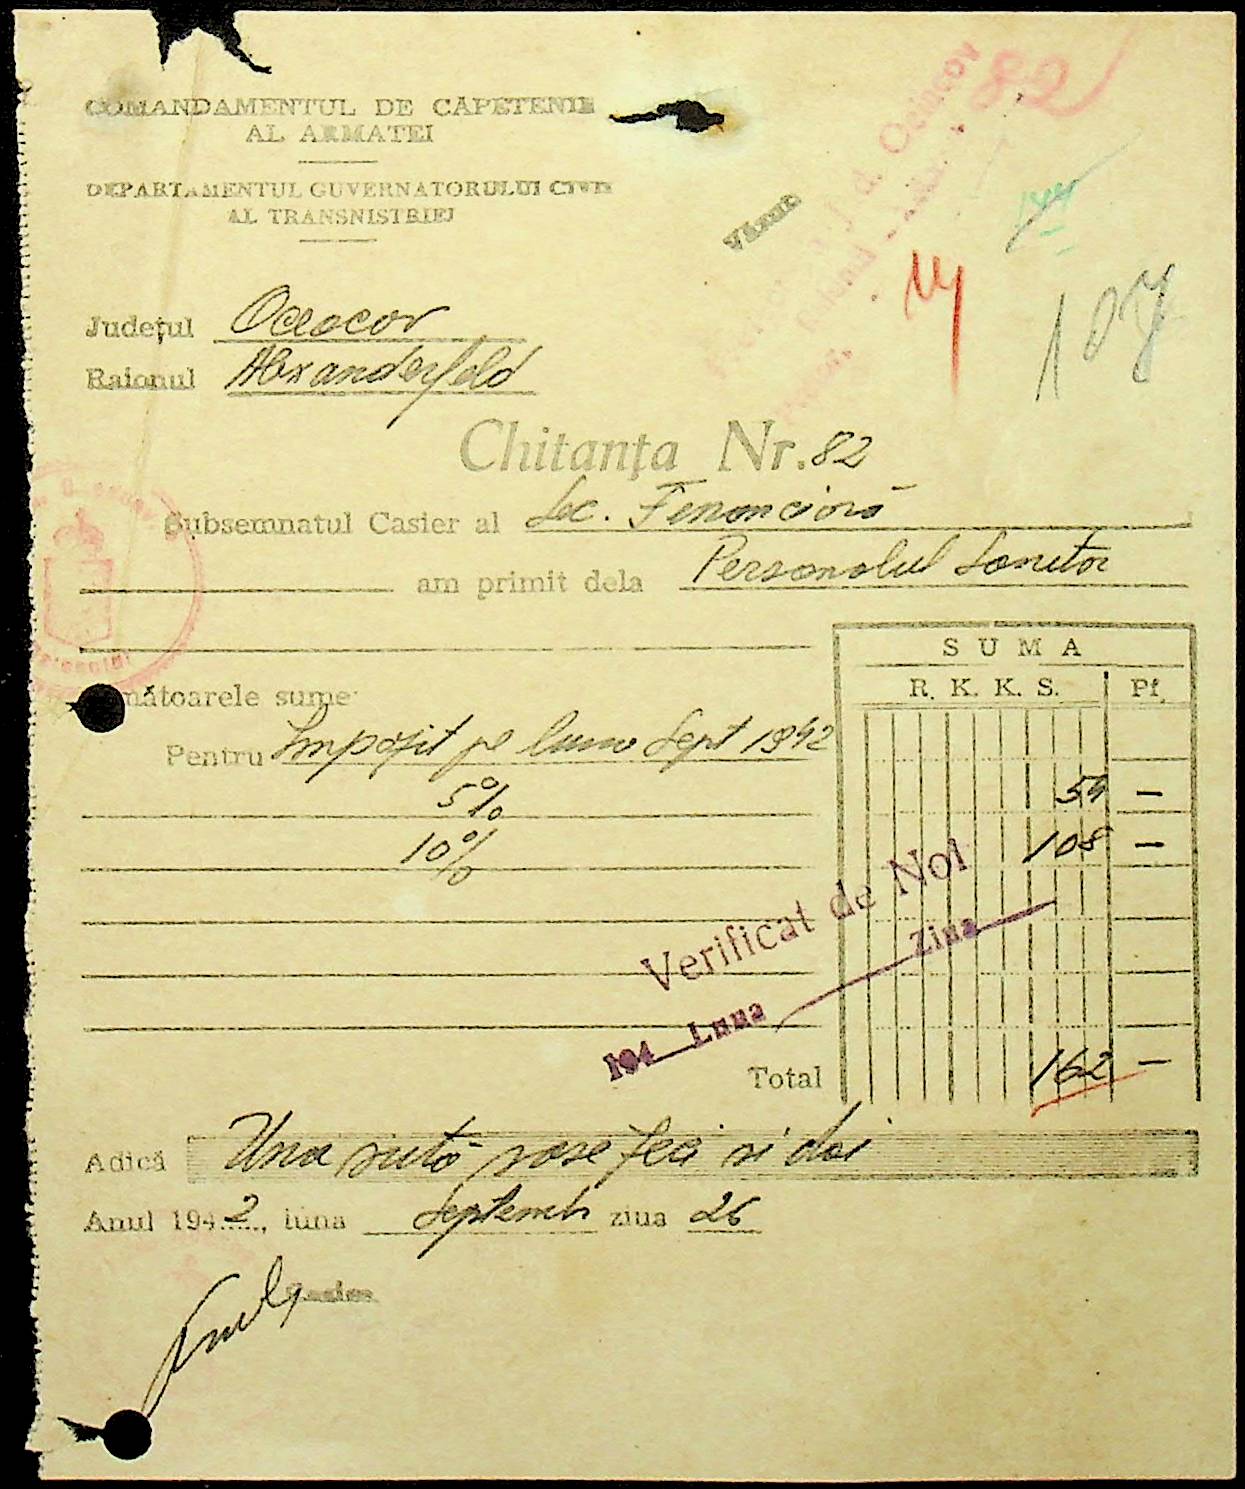 COMANDAMENTUL DE CAPETENIE
AL ARMATEI
DEPARTAMENTUL GUVERNATORULUI CIVIL
AL TRANSNISTRIEI
82
Văzut
107
Județul Oceacov
Raionul Alexanderfeld
Chitanța Nr. 82
Subsemnatul Casier al Sec. Financiară
am primit dela Personalul Sanitar
SUMA
R. K. K. S. Pf.
mătoarele sume
Pentru Impozit pe luna Sept 1942
5% 54 —
10% 108 —
Verificat de Noi
194 Luna Ziua
Total 162 —
Adică Una sută șase zeci și doi
Anul 1942, luna Septembr ziua 26
Casier